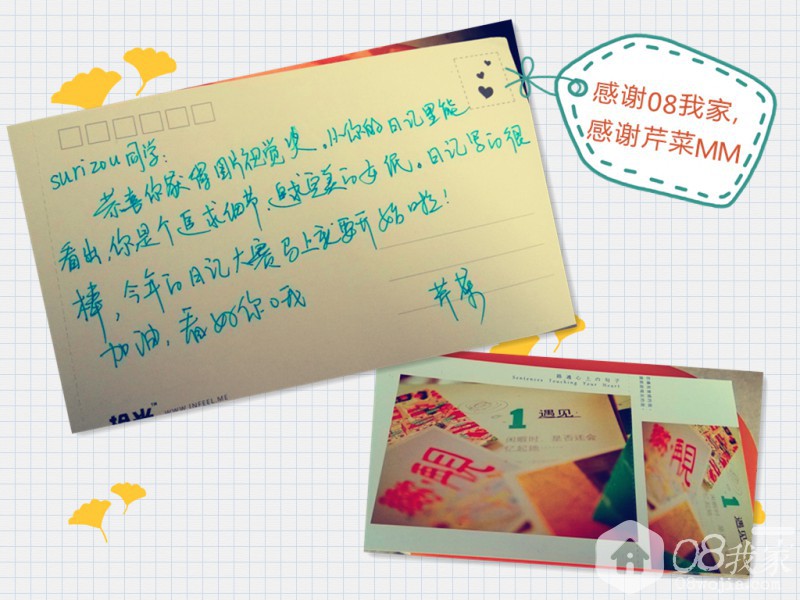 感谢08我家,
感谢芹菜MM
surizou同学:
恭喜你获得图片视觉奖。从你的日记里能
看出,你是个追求细节,追求完美的女孩。日记写的很
棒,今年的日记大赛马上就要开始啦!
加油,看好你哦
芹菜
拾光™ WWW.INFEEL.ME
遇通心上的句子
Sentences Touching Your Heart
1 遇见
闲暇时,是否还会
忆起她
1
遇见
08我家